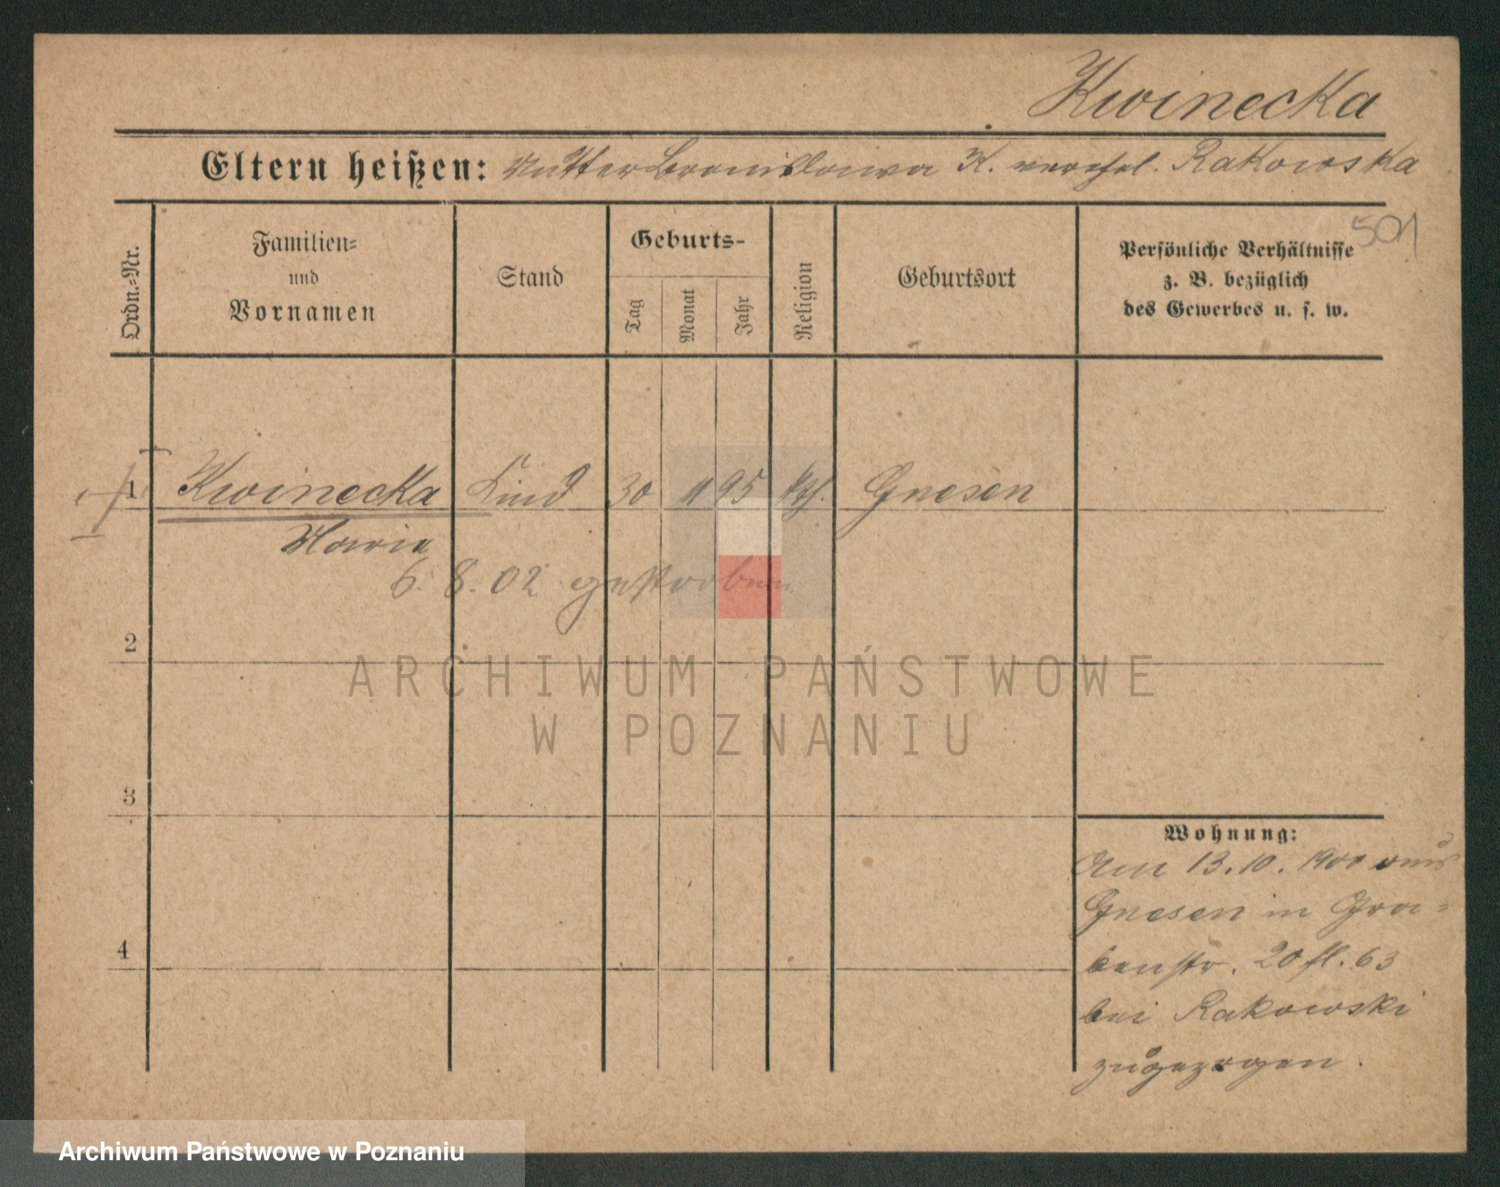 Kwinecka
Eltern heißen: Mutter Bronislawa K. verehel. Rakowska
501
Ordn.-Nr.
Familien-
und
Vornamen
Stand
Geburts-
Tag
Monat
Jahr
Religion
Geburtsort
Persönliche Verhältnisse
z. B. bezüglich
des Gewerbes u. s. w.
1 Kwinecka Kind 30 11 95 kth. Gnesen
Maria
6. 8. 02 gestorben
2
ARCHIWUM PAŃSTWOWE
W POZNANIU
3
Wohnung:
Am 13.10. 1900 aus
Gnesen in Gra-
4
benstr. 20 fl. 63
bei Rakowski
zugezogen.
Archiwum Państwowe w Poznaniu